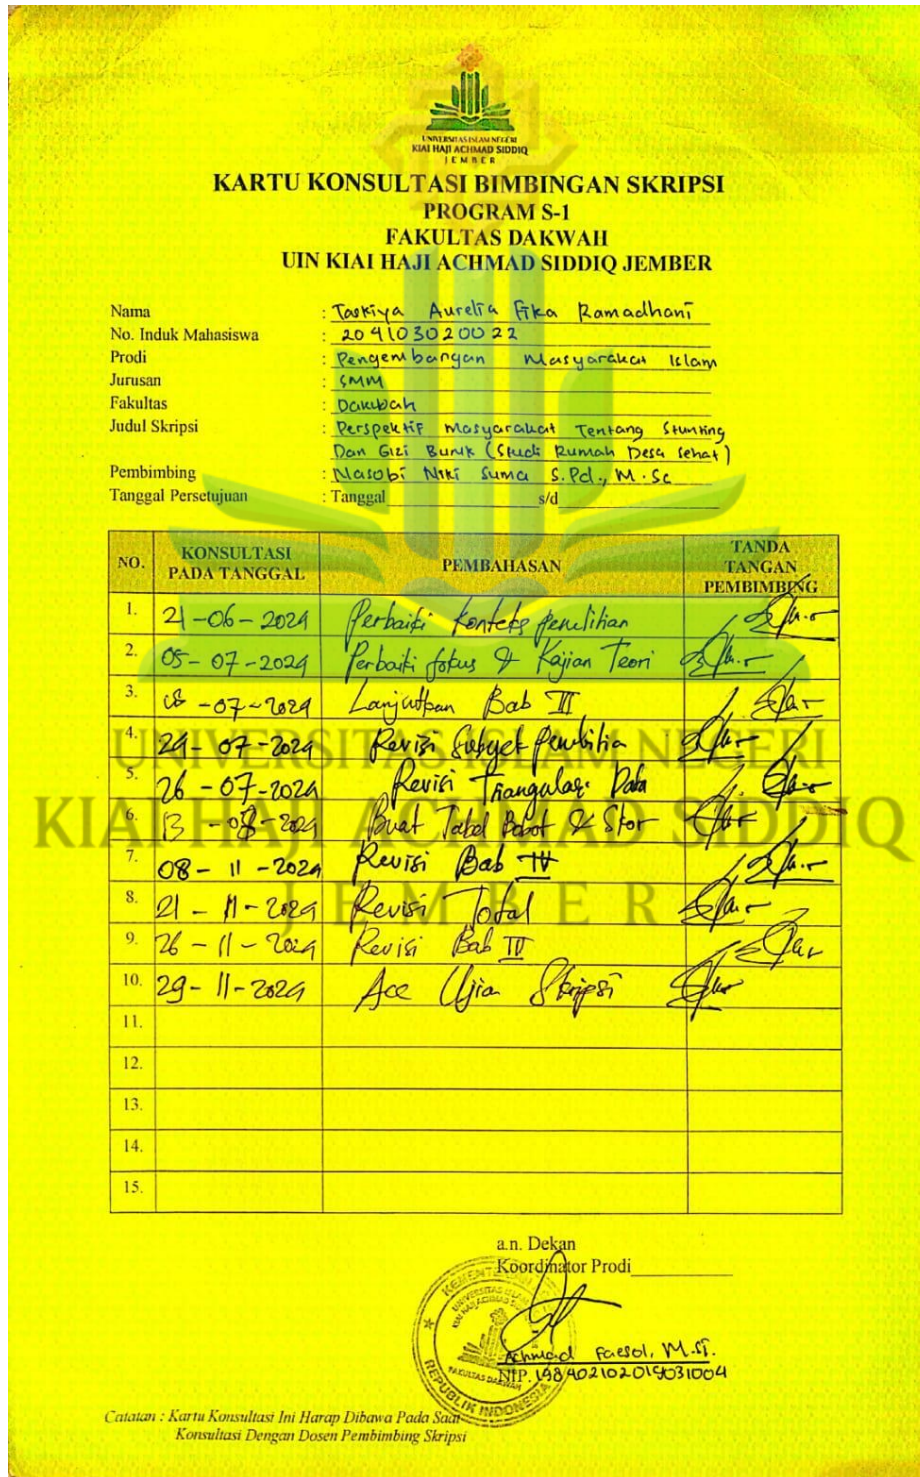 UNIVERSITAS ISLAM NEGERI
KIAI HAJI ACHMAD SIDDIQ
JEMBER
KARTU KONSULTASI BIMBINGAN SKRIPSI
PROGRAM S-1
FAKULTAS DAKWAH
UIN KIAI HAJI ACHMAD SIDDIQ JEMBER
Nama : Taskiya Aurelia Fika Ramadhani
No. Induk Mahasiswa : 204103020022
Prodi : Pengembangan Masyarakat Islam
Jurusan : SMM
Fakultas : Dakwah
Judul Skripsi : Perspektif Masyarakat Tentang Stunting
Dan Gizi Buruk (Studi Rumah Desa Sehat)
Pembimbing : Nasobi Niki Suma S.Pd., M.Sc
Tanggal Persetujuan : Tanggal s/d
NO. KONSULTASI PADA TANGGAL PEMBAHASAN TANDA TANGAN PEMBIMBING
1. 21-06-2024 Perbaiki Konteks penelitian
2. 05-07-2024 Perbaiki fokus & Kajian Teori
3. -07-2024 Lanjutkan Bab III
4. 24-07-2024 Revisi Subyek penelitia
5. 26-07-2024 Revisi Triangulasi Data
6. 13-08-2024 Buat Tabel Bobot & Skor
7. 08-11-2024 Revisi Bab IV
8. 21-11-2024 Revisi Total
9. 26-11-2024 Revisi Bab IV
10. 29-11-2024 Acc Ujian Skripsi
11.
12.
13.
14.
15.
UNIVERSITAS ISLAM NEGERI
KIAI HAJI ACHMAD SIDDIQ
JEMBER
a.n. Dekan
Koordinator Prodi
KEMENTERIAN
UNIVERSITAS ISLAM
KIAI HAJI ACHMAD SIDDIQ
FAKULTAS DAKWAH
REPUBLIK INDONESIA
Achmad Faesol, M.Si.
NIP. 198402102019031004
Catatan : Kartu Konsultasi Ini Harap Dibawa Pada Saat
Konsultasi Dengan Dosen Pembimbing Skripsi